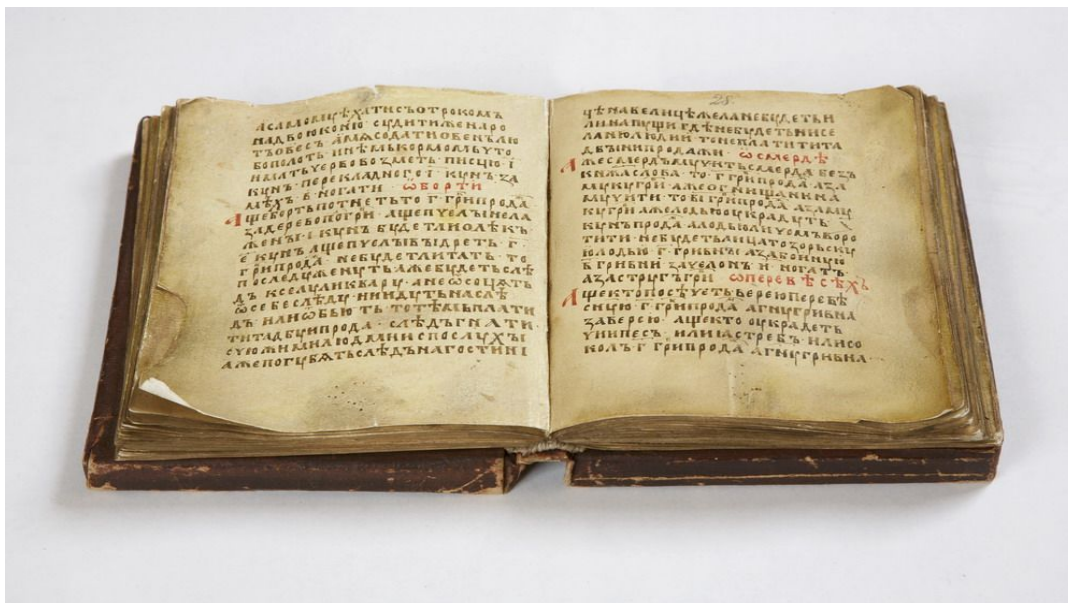 АСАМОМꙊѢХАТИСЪОТРОКОМЪ
НАДВОЮКОНЮ· СꙊДИТИЖЕНАРО
ТЪОВЕСЪ· АМѦСОДАТИОВЕНЪЛЮ
БОПОЛОТЬ· ИНѢМЬКОРМОМЬЧТО
ИМАТЬЧЕРЕВОВОЗМЕТЬ· ПИСЦЮ·І·
КꙊНЪ· ПЕРЕКЛАДНОГО·Е·КꙊНЪ·ЗА
МѢХЪ·В·НОГАТИ· ѠБОРТИ
АЩЕБОРТЬПОТНЕТЬТО·Г·ГРИПРОДА
ЗАДЕРЕВОПОГРИ· АЩЕПЧЕЛЫИЗЛА
ЖЕНЫ·І·КꙊНЪ БꙊДЕТЛИОЛѢКЪ·
Е·КꙊНЪ АЩЕПЧЕЛЫВЫДРЕТЬ·Г·
ГРИПРОДА· НЕБꙊДЕТЛИТАТЬ·ТО
ПОСЛЕДꙊЖЕНꙊТЬАЖЕБꙊДЕТЬСЛѢ
ДЪ КСЕЛꙊИЛИКТОВАРꙊ·АНЕѠСОЧАТЬ
ѠСЕБЕСЛѢДꙊ· НИИДꙊТЬНАСЛѢ
ДЪ ИЛИѠБЬЮТЬ·ТОТѢМЬПЛАТИ
ТИТАДБꙊИПРОДА· СЛѢДЪГНАТИ·
СЧЮЖИМИЛЮДМИИСПОСЛꙊХЫ
АЖЕПОГꙊБѦТЬСЛѢДЪНАГОСТИНІ
28
ЧѢНАВЕЛИЦѢЖЕЛАНЕБꙊДЕТЬИ
ЛИНАПꙊЩИГДѢНЕБꙊДЕТЬНИСЕ
ЛАНИЛЮДИИ ТОНЕПЛАТИТИТА
ДБЫНИПРОДАЖИ· ѠСМЕРДѢ
АЖЕСМЕРДЪМꙊЧИТЬСМЕРДАБЕЗЪ
КНѦЖАСЛОВА·ТО·Г·ГРИПРОДА АЗА
МꙊКꙊГРИ·АЖЕОГНИЩАНИНА
МꙊЧИТИ·ТОВІГРИПРОДА АЗАМꙊ
КꙊГРИАЖЕЛОДЬЮОꙊКРАДꙊТЬ·З·
КꙊНЪПРОДА·АЛОДЬЮЛИЧОМЪВОРО
ТИТИ·НЕБꙊДЕТЬЛИЦАТОЗОРЬСКꙊ
ЮЛОДЬЮ·Г·ГРИВНЫ АЗАБОИНꙊЮ
В·ГРИВНИ ЗАЧЕЛОНЪ·И·НОГАТЪ·
АЗАСТРꙊГЪГРИ ѠПЕРЕВѢСѢХЪ
АЩЕКТОПОСѢЧЕТЬВЕРЕЮПЕРЕВѢ
СНꙊЮ·Г·ГРИПРОДА АГНꙊГРИВНА
ЗАВЕРВЮ· АЩЕКТО ОꙊКРАДЕТЬ
ЧИИПЕСЪ ИЛИꙖСТРЕБЪ·ИЛИСО
КОЛЪ·Г·ГРИПРОДА·АГНꙊГРИВНА·